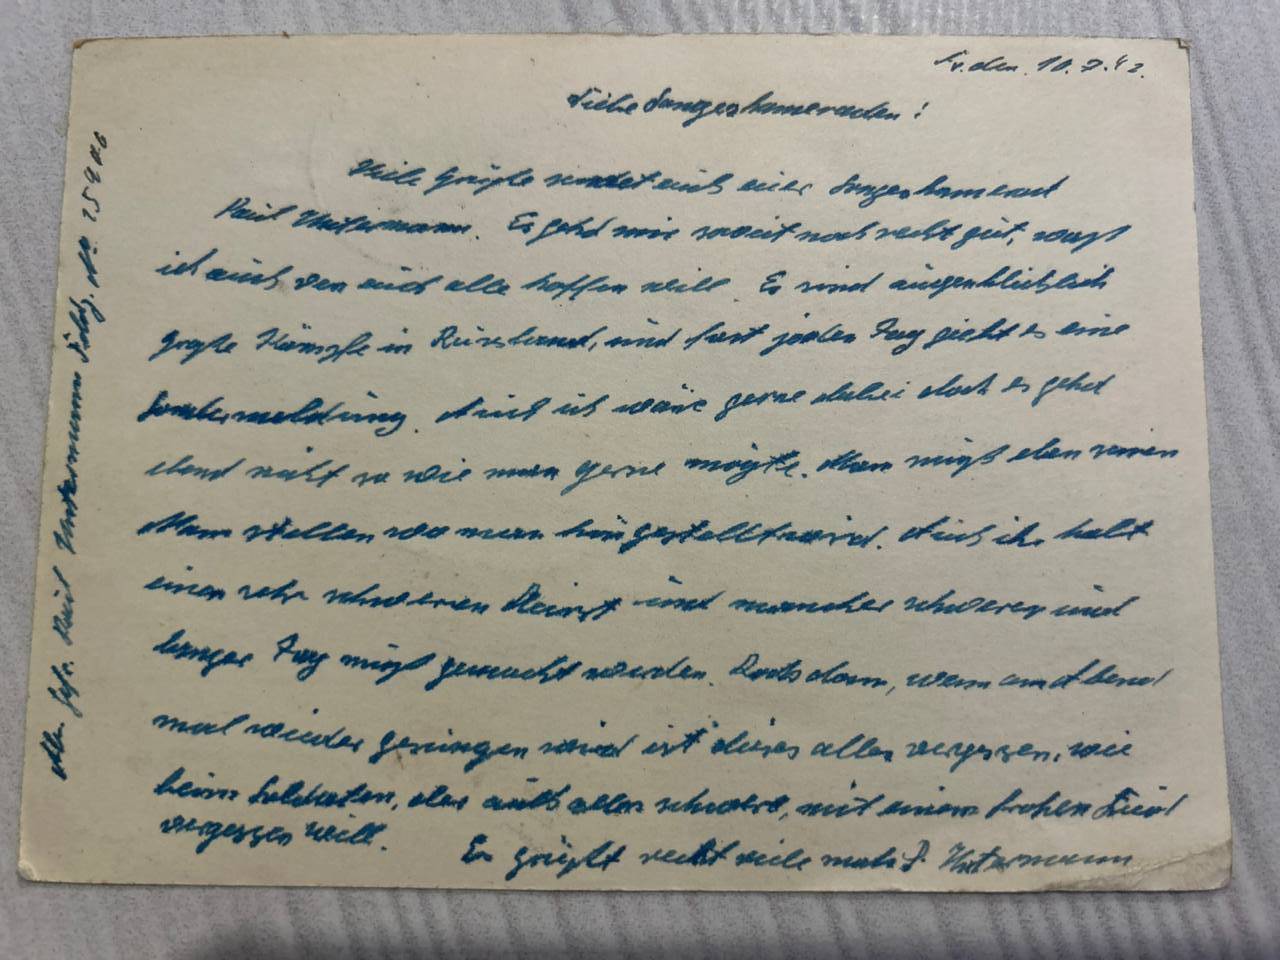 den 10.7.42.
Liebe Sangeskameraden!
Viele Grüße sendet euch euer Sangeskamerad
Paul Untermann. Es gehd mir soweit noch recht gut, was
ich auch von euch alle hoffen will. Es sind augenblicklich
große Kämpfe in Russland, und fast jeden Tag giebt es eine
Sondermeldung. Auch ich wäre gerne dabei doch es gehd
ebend nicht so wie man gerne mögte. Man muß eben seinen
Mann stellen wo man hingestellt wird. Auch ihr habt
einen sehr schweren Dienst und mancher schwerer und
langer Tag muß gemacht werden. Doch dann, wenn am Abend
mal wieder gesungen wird ist dieses alles vergessen, wie
beim Soldaten, der auch alles schwere, mit einem frohen Lied
vergessen will.
Es grüßt recht viele mals P. Untermann
Abs. Gefr. Paul Untermann Feldp. Nr. 25906